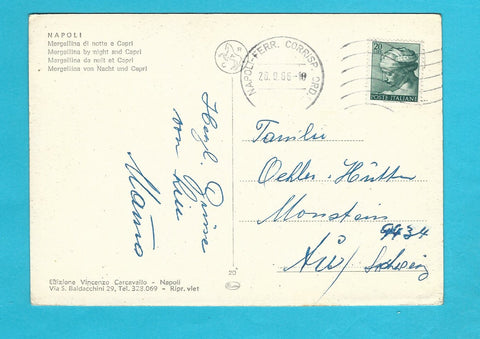 NAPOLI
Mergellina di notte e Capri
Mergellina by night and Capri
Mergellina da nuit et Capri
Mergellina von Nacht und Capri
NAPOLI-FERR. CORRISP. ORD.
20
POSTE ITALIANE
Herzl. Grüsse
von
Familie
Oehler-Hütter
Monstein
9434
Au/ Schweiz
Edizione Vincenzo Carcavallo - Napoli
Via S. Baldacchini 29, Tel. 323.069 - Ripr. viet
20